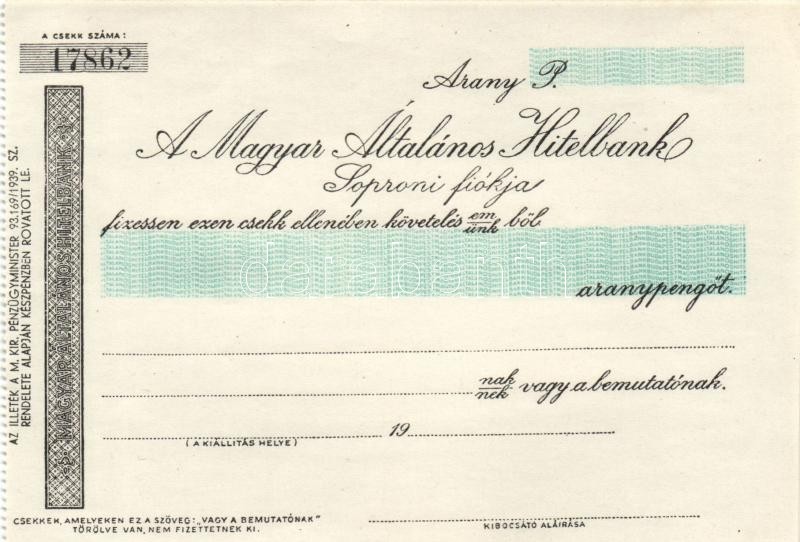 A CSEKK SZÁMA:
17862
Arany P.
A Magyar Általános Hitelbank
Soproni fiókja
fizessen ezen csekk ellenében követelés em/ünk ből
aranypengőt.
nak/nek vagy a bemutatónak.
19
(A KIÁLLITÁS HELYE)
KIBOCSÁTÓ ALÁIRÁSA
CSEKKEK, AMELYEKEN EZ A SZÖVEG: „VAGY A BEMUTATÓNAK"
TÖRÖLVE VAN, NEM FIZETTETNEK KI.
AZ ILLETÉK A M. KIR. PÉNZÜGYMINISTER 93.169/1939. SZ.
RENDELETE ALAPJÁN KÉSZPÉNZBEN ROVATOTT LE.
MAGYAR ÁLTALÁNOS HITELBANK
darabanth